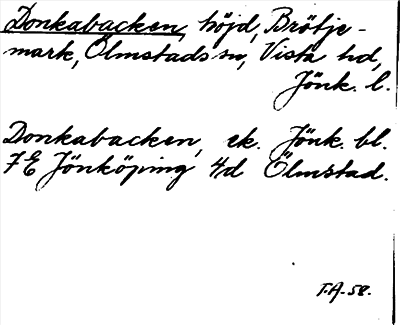 Donkabacken, höjd, Brötje-
mark, Ölmstads sn, Vista hd,
Jönk. l.
Donkabacken, ek. Jönk. bl.
7E Jönköping 4d Ölmstad.
T.A-58.